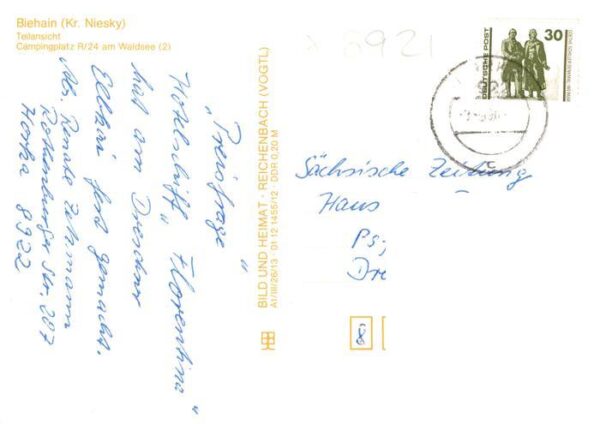 Biehain (Kr. Niesky)
Teilansicht
Campingplatz R/24 am Waldsee (2)
"Preisfrage"
Hotelschiff "Florentina"
hat am Dresdner
Elbkai fest gemacht.
Abs. Renate Zehmann
Rothenburger Str. 287
Horka 8922
BILD UND HEIMAT · REICHENBACH (VOGTL)
A1/III/26/13 · 01 12 1455/12 · DDR 0,20 M
8921
DEUTSCHE POST
30
Sächsische Zeitung
Haus
Ps
Dre